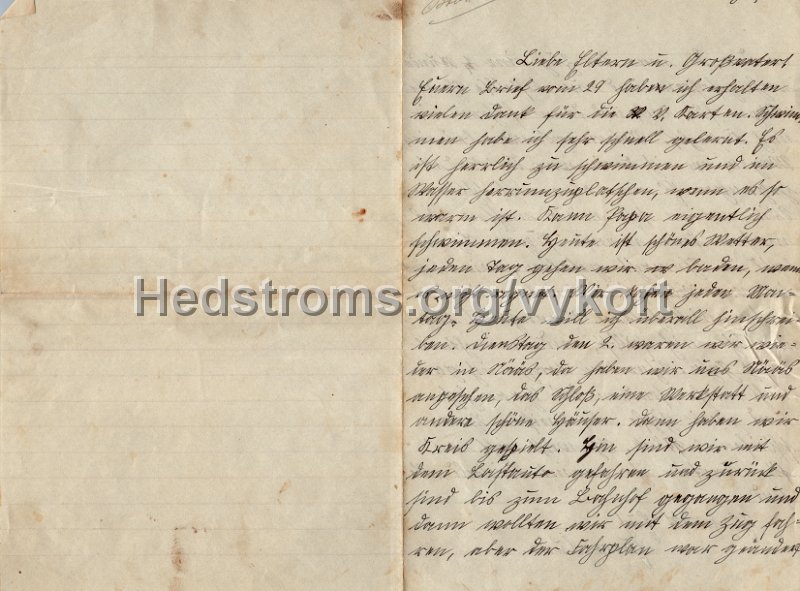 Liebe Eltern u. Großvater!
Euern Brief vom 29 habe ich erhalten
vielen Dank für die V. Karten. Schwim-
men habe ich sehr schnell gelernt. Es
ist herrlich zu schwimmen und im
Wasser herrumzuplatschen, wenn es so
warm ist. Kann Papa eigentlich
schwimmen. Heute ist schönes Wetter,
jeden Tag gehen wir baden, wenn
Hedstroms.org/vykort
jeden Mon-
tag. Heute will ich überall hinschrei-
ben. Dienstag den 2. waren wir wie-
der in Nääs, da haben wir uns Nääs
angesehen, das Schloß, eine Werkstatt und
andere schöne Häuser. Dann haben wir
Kreis gespielt. Hin sind wir mit
dem Lastauto gefahren und zurück
sind bis zum Bahnhof gegangen und
dann wollten wir mit dem Zug fah-
ren, aber der Fahrplan war geändert